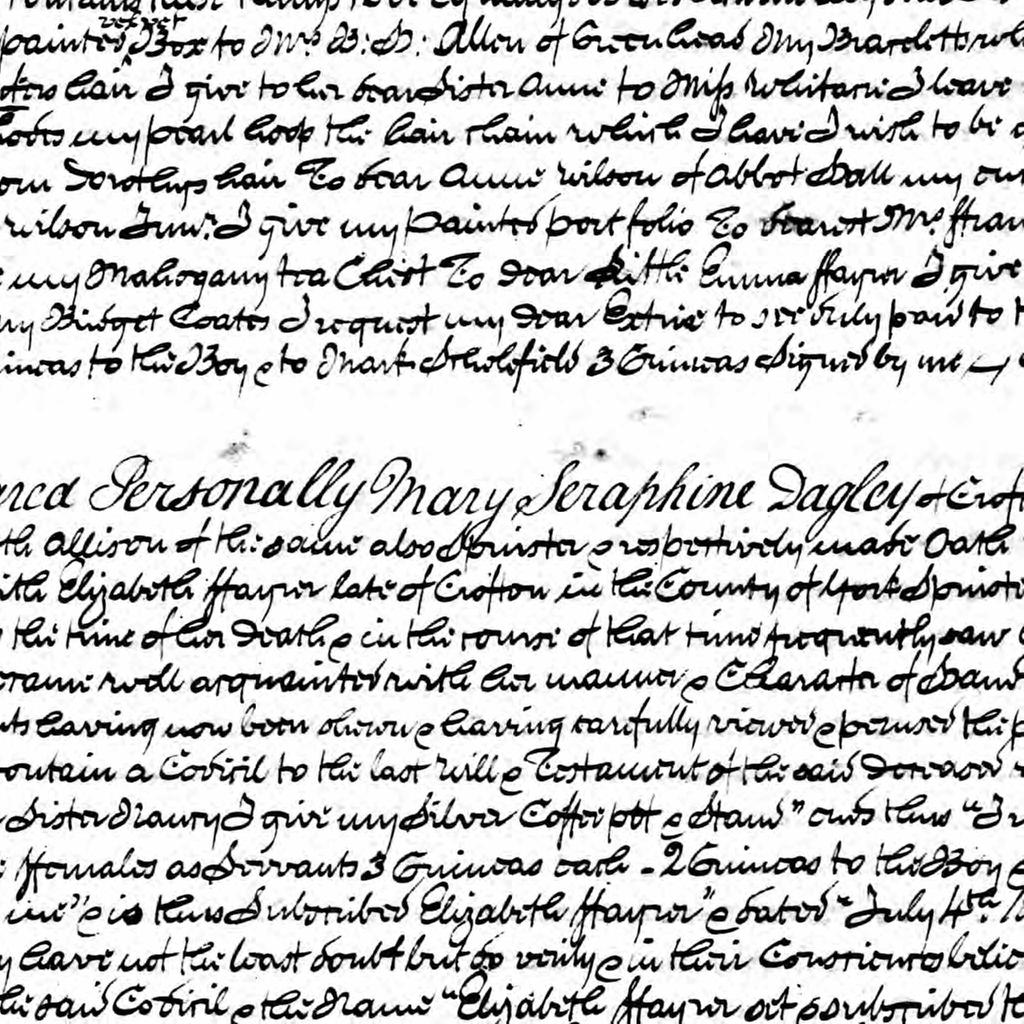 velvet
painted Box to Mrs. B: D: Allen of Greenhead My Bracelets
hair I give to her dear Sister Anne to Miss Whitacre I leave
my pearl hoop the hair chain which I have I wish to be
Dorothys hair To dear Anne Wilson of Abbot Hall my
Wilson Junr. I give my painted port folio To dearest Mrs. ffran
my Mahogany tea Chest To dear Little Emma ffayrer I give
Bridget Coates I request my dear Extrix to see duly paid to
ineas to the Boy & to Mark Scholefield 3 Guineas Signed by me
ared Personally Mary Seraphine Dagley of Crof
th Allison of the same also Spinster & respectively made Oath
ith Elizabeth ffayrer late of Crofton in the County of York Spinste
the time of her Death & in the course of that time frequently saw
came well acquainted with her manner & Character of Hand
ts having now been shewn & having carefully viewed & perused the p
contain a Codicil to the last Will & Testament of the said deceased
Sister Nancy I give my Silver Coffee pot & Stand" ends thus "I
ffemales as Servants 3 Guineas each - 2 Guineas to the Boy &
me" & is thus Subscribed Elizabeth ffayrer" & dated "July 4th.
y have not the least doubt but do verily & in their Consciences belie
he said Codicil & the Name "Elizabeth ffayrer set & subscribed